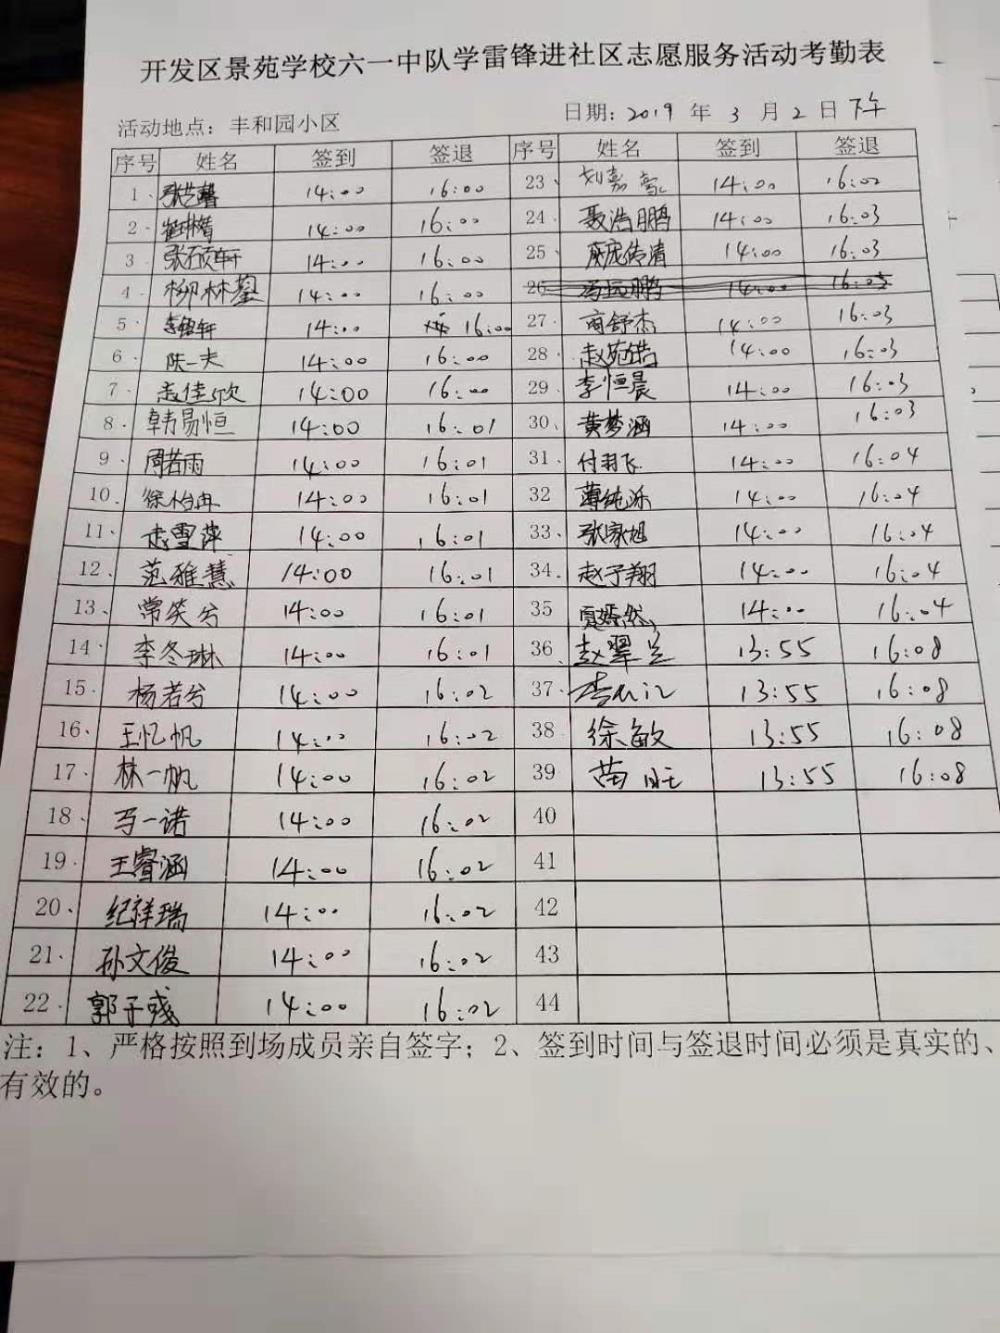 开发区景苑学校六一中队学雷锋进社区志愿服务活动考勤表
活动地点：丰和园小区 日期：2019 年 3 月 2 日 下午
序号 姓名 签到 签退 序号 姓名 签到 签退
1、 张艺馨 14:00 16:00 23、 刘嘉豪 14:00 16:02
2、 14:00 16:00 24、 聂浩鹏 14:00 16:03
3、 张硕轩 14:00 16:00 25、 庞传清 14:00 16:03
4、 柳林蓥 14:00 16:00 26、 冯玉鹏 14:00 16:03
5、 李铭轩 14:00 16:00 27、 商舒杰 14:00 16:03
6、 陈一夫 14:00 16:00 28、 赵苑皓 14:00 16:03
7、 孟佳欣 14:00 16:00 29、 李恒晨 14:00 16:03
8、 韩易恒 14:00 16:01 30、 黄梦涵 14:00 16:03
9、 周若雨 14:00 16:01 31、 付羽飞 14:00 16:04
10、 徐怡冉 14:00 16:01 32 薄纯泺 14:00 16:04
11、 孟雪萍 14:00 16:01 33、 张家旭 14:00 16:04
12、 范雅慧 14:00 16:01 34、 赵子翔 14:00 16:04
13、 常笑兮 14:00 16:01 35 贾嫣然 14:00 16:04
14、 李冬琳 14:00 16:01 36、 赵翠兰 13:55 16:08
15、 杨若兮 14:00 16:02 37、 13:55 16:08
16、 王忆帆 14:00 16:02 38 徐敏 13:55 16:08
17、 林一帆 14:00 16:02 39 苗旺 13:55 16:08
18、 马一诺 14:00 16:02 40
19、 王睿涵 14:00 16:02 41
20、 纪祥瑞 14:00 16:02 42
21、 孙文俊 14:00 16:02 43
22、 郭子彧 14:00 16:02 44
注：1、严格按照到场成员亲自签字；2、签到时间与签退时间必须是真实的、
有效的。